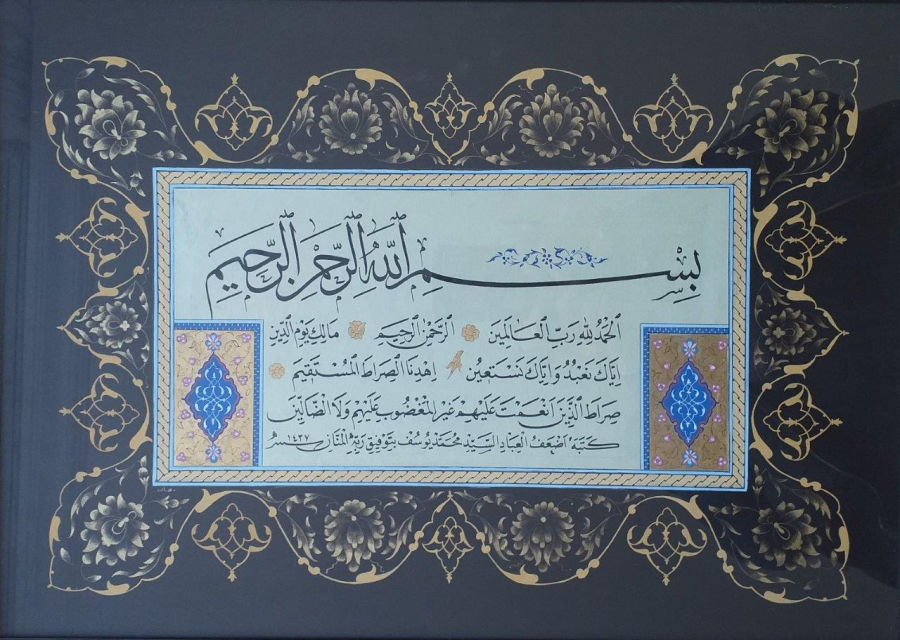 بِسْمِ اللّٰهِ الرَّحْمٰنِ الرَّحِيمِ
الْحَمْدُ لِلّٰهِ رَبِّ الْعَالَمِينَ الرَّحْمٰنِ الرَّحِيمِ مَالِكِ يَوْمِ الدِّينِ
اِيَّاكَ نَعْبُدُ وَاِيَّاكَ نَسْتَعِينُ اِهْدِنَا الصِّرَاطَ الْمُسْتَقِيمَ
صِرَاطَ الَّذِينَ اَنْعَمْتَ عَلَيْهِمْ غَيْرِ الْمَغْضُوبِ عَلَيْهِمْ وَلَا الضَّالِّينَ
كتبه اضعف العباد السيد محمد يوسف بتوفيق ربه المنان سنة ١٤٢٧